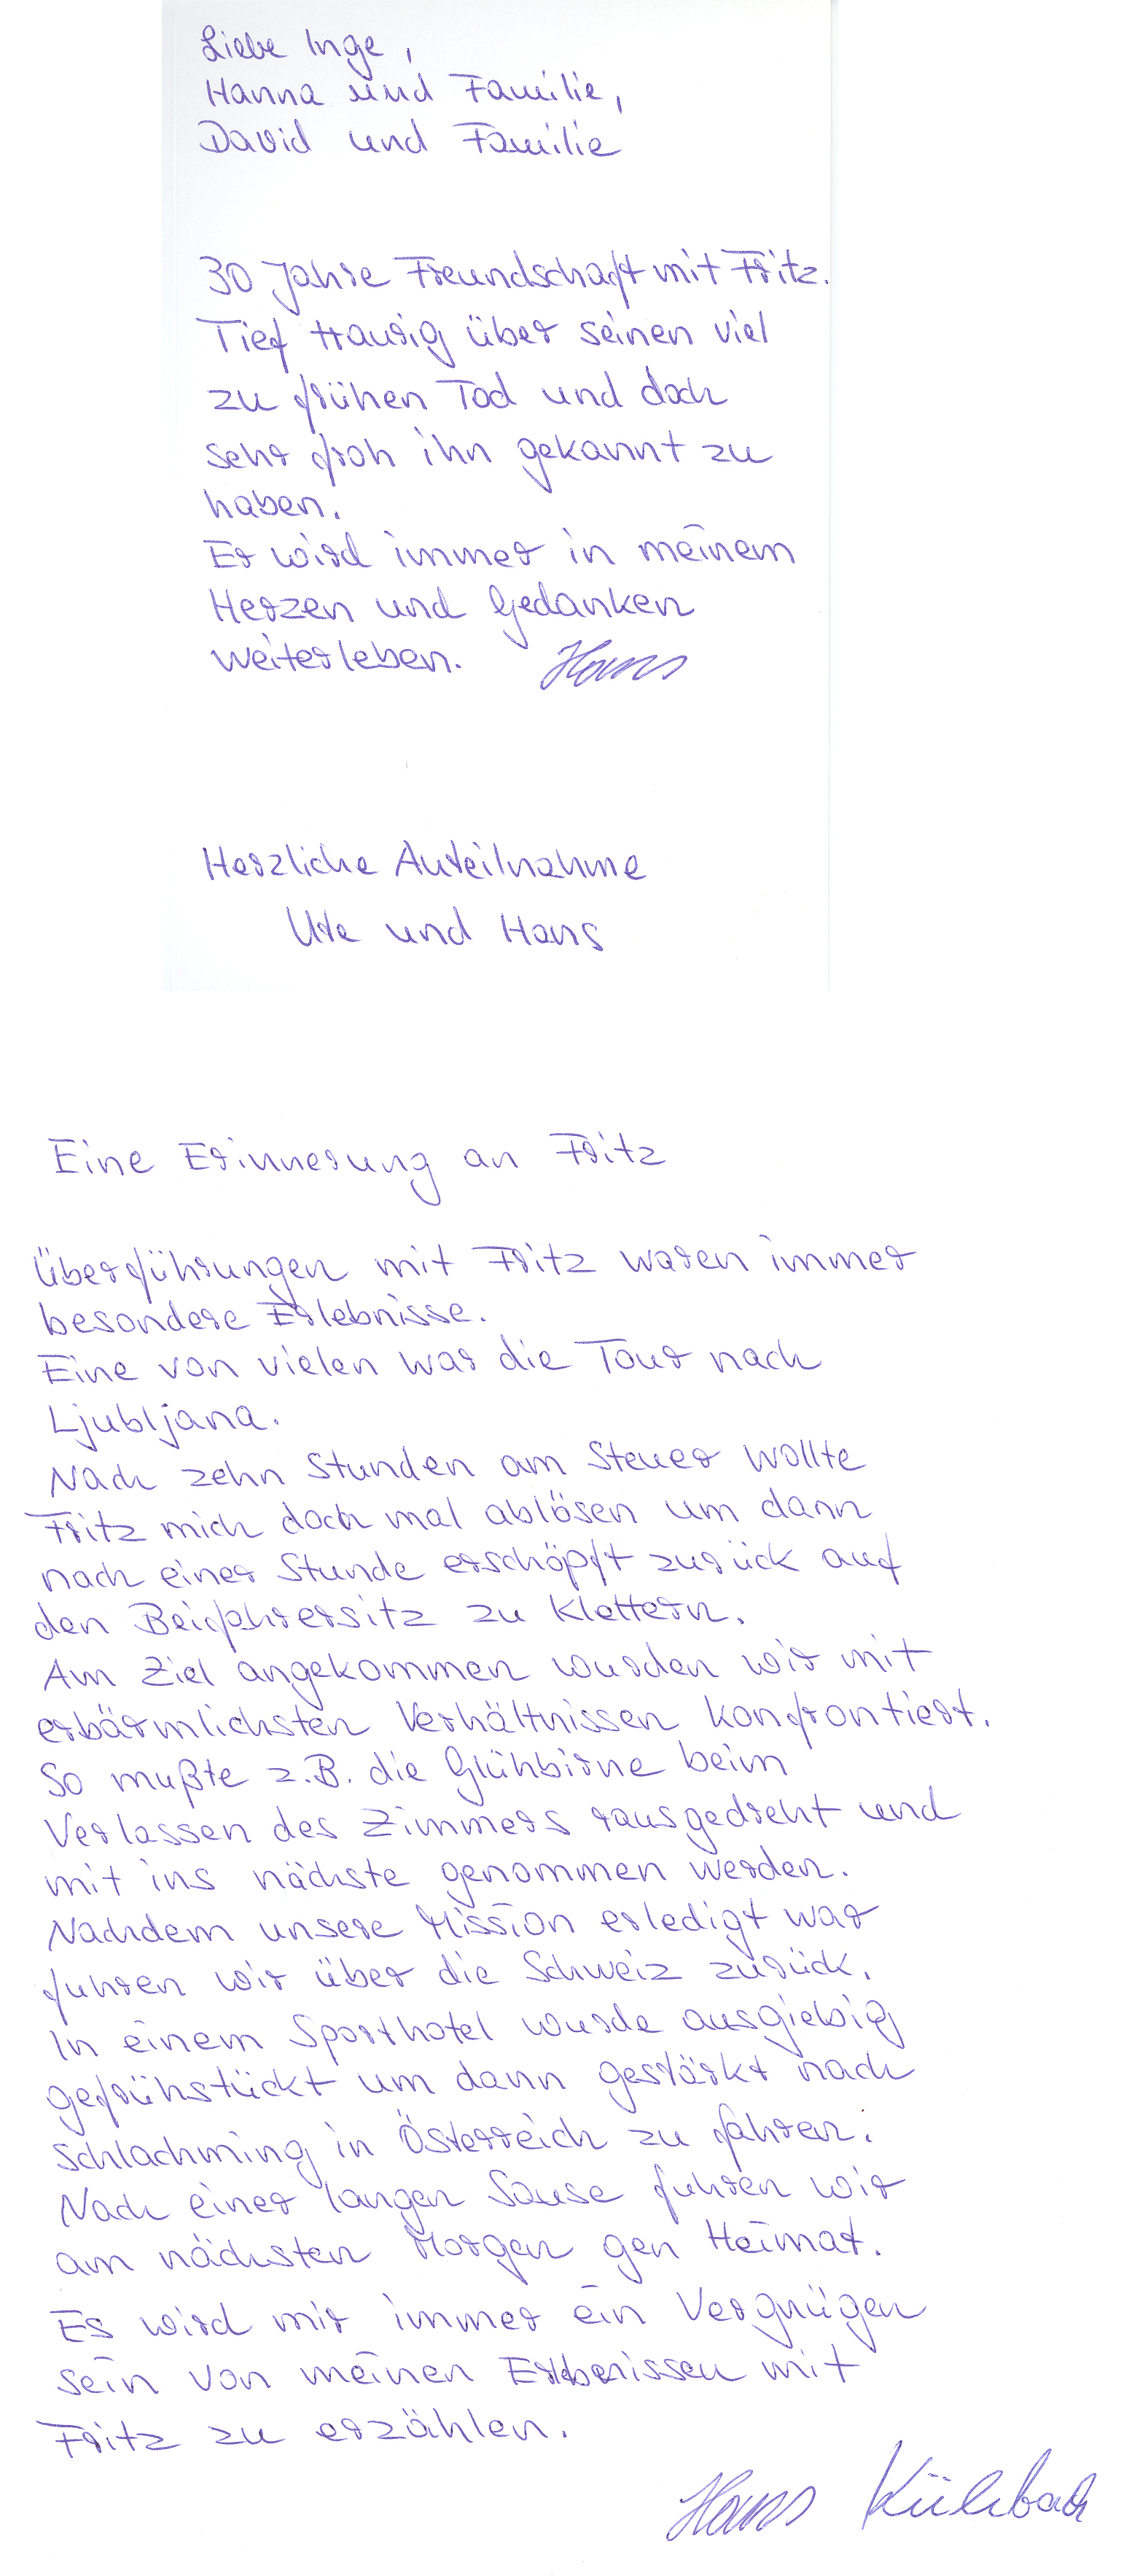 Liebe Inge,
Hanna und Familie,
David und Familie
30 Jahre Freundschaft mit Fritz.
Tief traurig über seinen viel
zu frühen Tod und doch
sehr froh ihn gekannt zu
haben.
Er wird immer in meinem
Herzen und Gedanken
weiterleben. Hans
Herzliche Anteilnahme
Ute und Hans
Eine Erinnerung an Fritz
Überführungen mit Fritz waren immer
besondere Erlebnisse.
Eine von vielen war die Tour nach
Ljubljana.
Nach zehn Stunden am Steuer wollte
Fritz mich doch mal ablösen um dann
nach einer Stunde erschöpft zurück auf
den Beifahrersitz zu klettern.
Am Ziel angekommen wurden wir mit
erbärmlichsten Verhältnissen konfrontiert.
So mußte z.B. die Glühbirne beim
Verlassen des Zimmers rausgedreht und
mit ins nächste genommen werden.
Nachdem unsere Mission erledigt war
fuhren wir über die Schweiz zurück.
In einem Sporthotel wurde ausgiebig
gefrühstückt um dann gestärkt nach
Schlachming in Österreich zu fahren.
Nach einer langen Sause fuhren wir
am nächsten Morgen gen Heimat.
Es wird mir immer ein Vergnügen
sein von meinen Erlebnissen mit
Fritz zu erzählen.
Hans